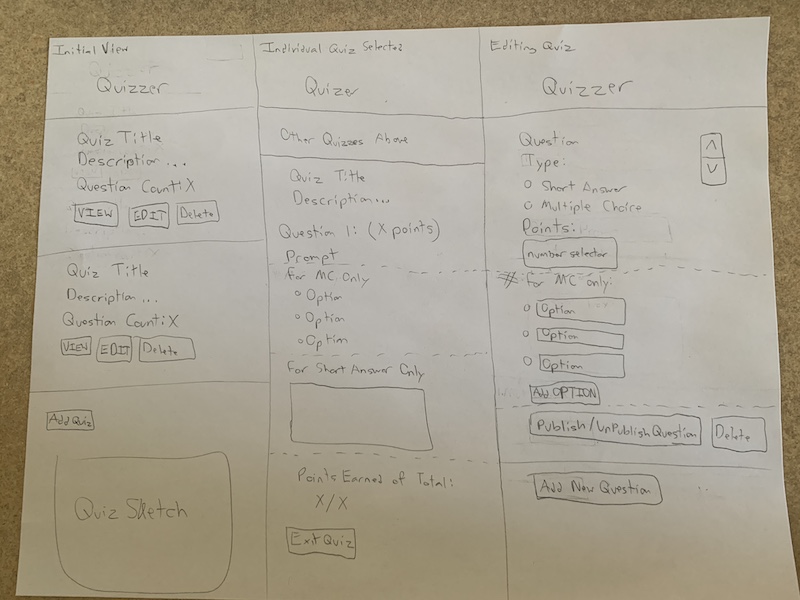 Initial View
Quizzer
Quiz Title
Description...
Question Count: X
VIEW EDIT Delete
Quiz Title
Description...
Question Count: X
VIEW EDIT Delete
Add Quiz
Quiz Sketch
Individual Quiz Selected
Quizer
Other Quizzes Above
Quiz Title
Description...
Question 1: (X points)
Prompt
for MC Only
Option
Option
Option
for Short Answer Only
Points Earned of Total:
X/X
Exit Quiz
Editing Quiz
Quizzer
Question
Type:
Short Answer
Multiple Choice
Points:
number selector
for MC only:
Option
Option
Option
Add OPTION
Publish/UnPublish Question Delete
Add New Question